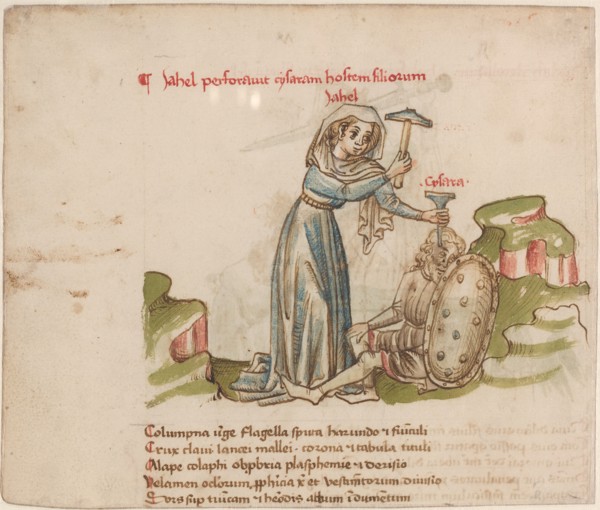 ¶ Jahel perforavit cysaram hostem filiorum
Jahel
Cysara
Columpna virge flagella spinea harundo et funiculi
Crux clavi lancea mallei corona et tabula tituli
Alape colaphi obprobria plasphemie et derisio
Velamen oculorum pphicia xi et vestimentorum divisio
Sors sputum et herodis album indumentum